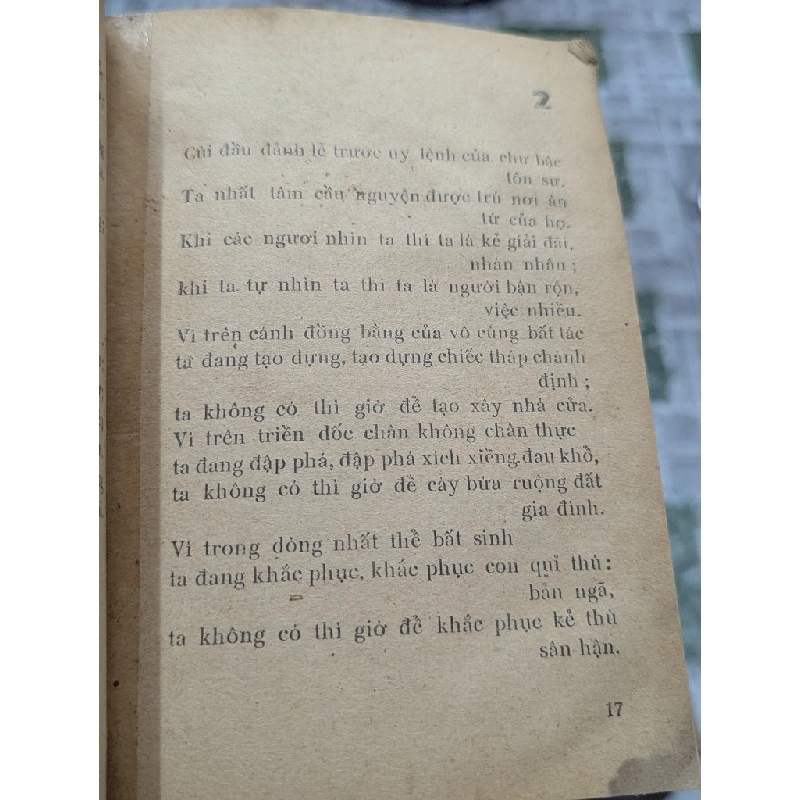 2
Cúi đầu đảnh lễ trước uy lệnh của chư bậc
tôn sư.
Ta nhất tâm cầu nguyện được trú nơi ân
từ của họ.
Khi các ngươi nhìn ta thì ta là kẻ giải đãi,
nhàn nhân ;
khi ta tự nhìn ta thì ta là người bận rộn,
việc nhiều.
Vì trên cánh đồng bằng của vô cùng bất tác
ta đang tạo dựng, tạo dựng chiếc tháp chánh
định ;
ta không có thì giờ để tạo xây nhà cửa.
Vì trên triền dốc chân không chân thực
ta đang đập phá, đập phá xích xiềng đau khổ,
ta không có thì giờ để cày bừa ruộng đất
gia đình.
Vì trong dòng nhất thể bất sinh
ta đang khắc phục, khắc phục con quỉ thù :
bản ngã,
ta không có thì giờ để khắc phục kẻ thù
sân hận.
17